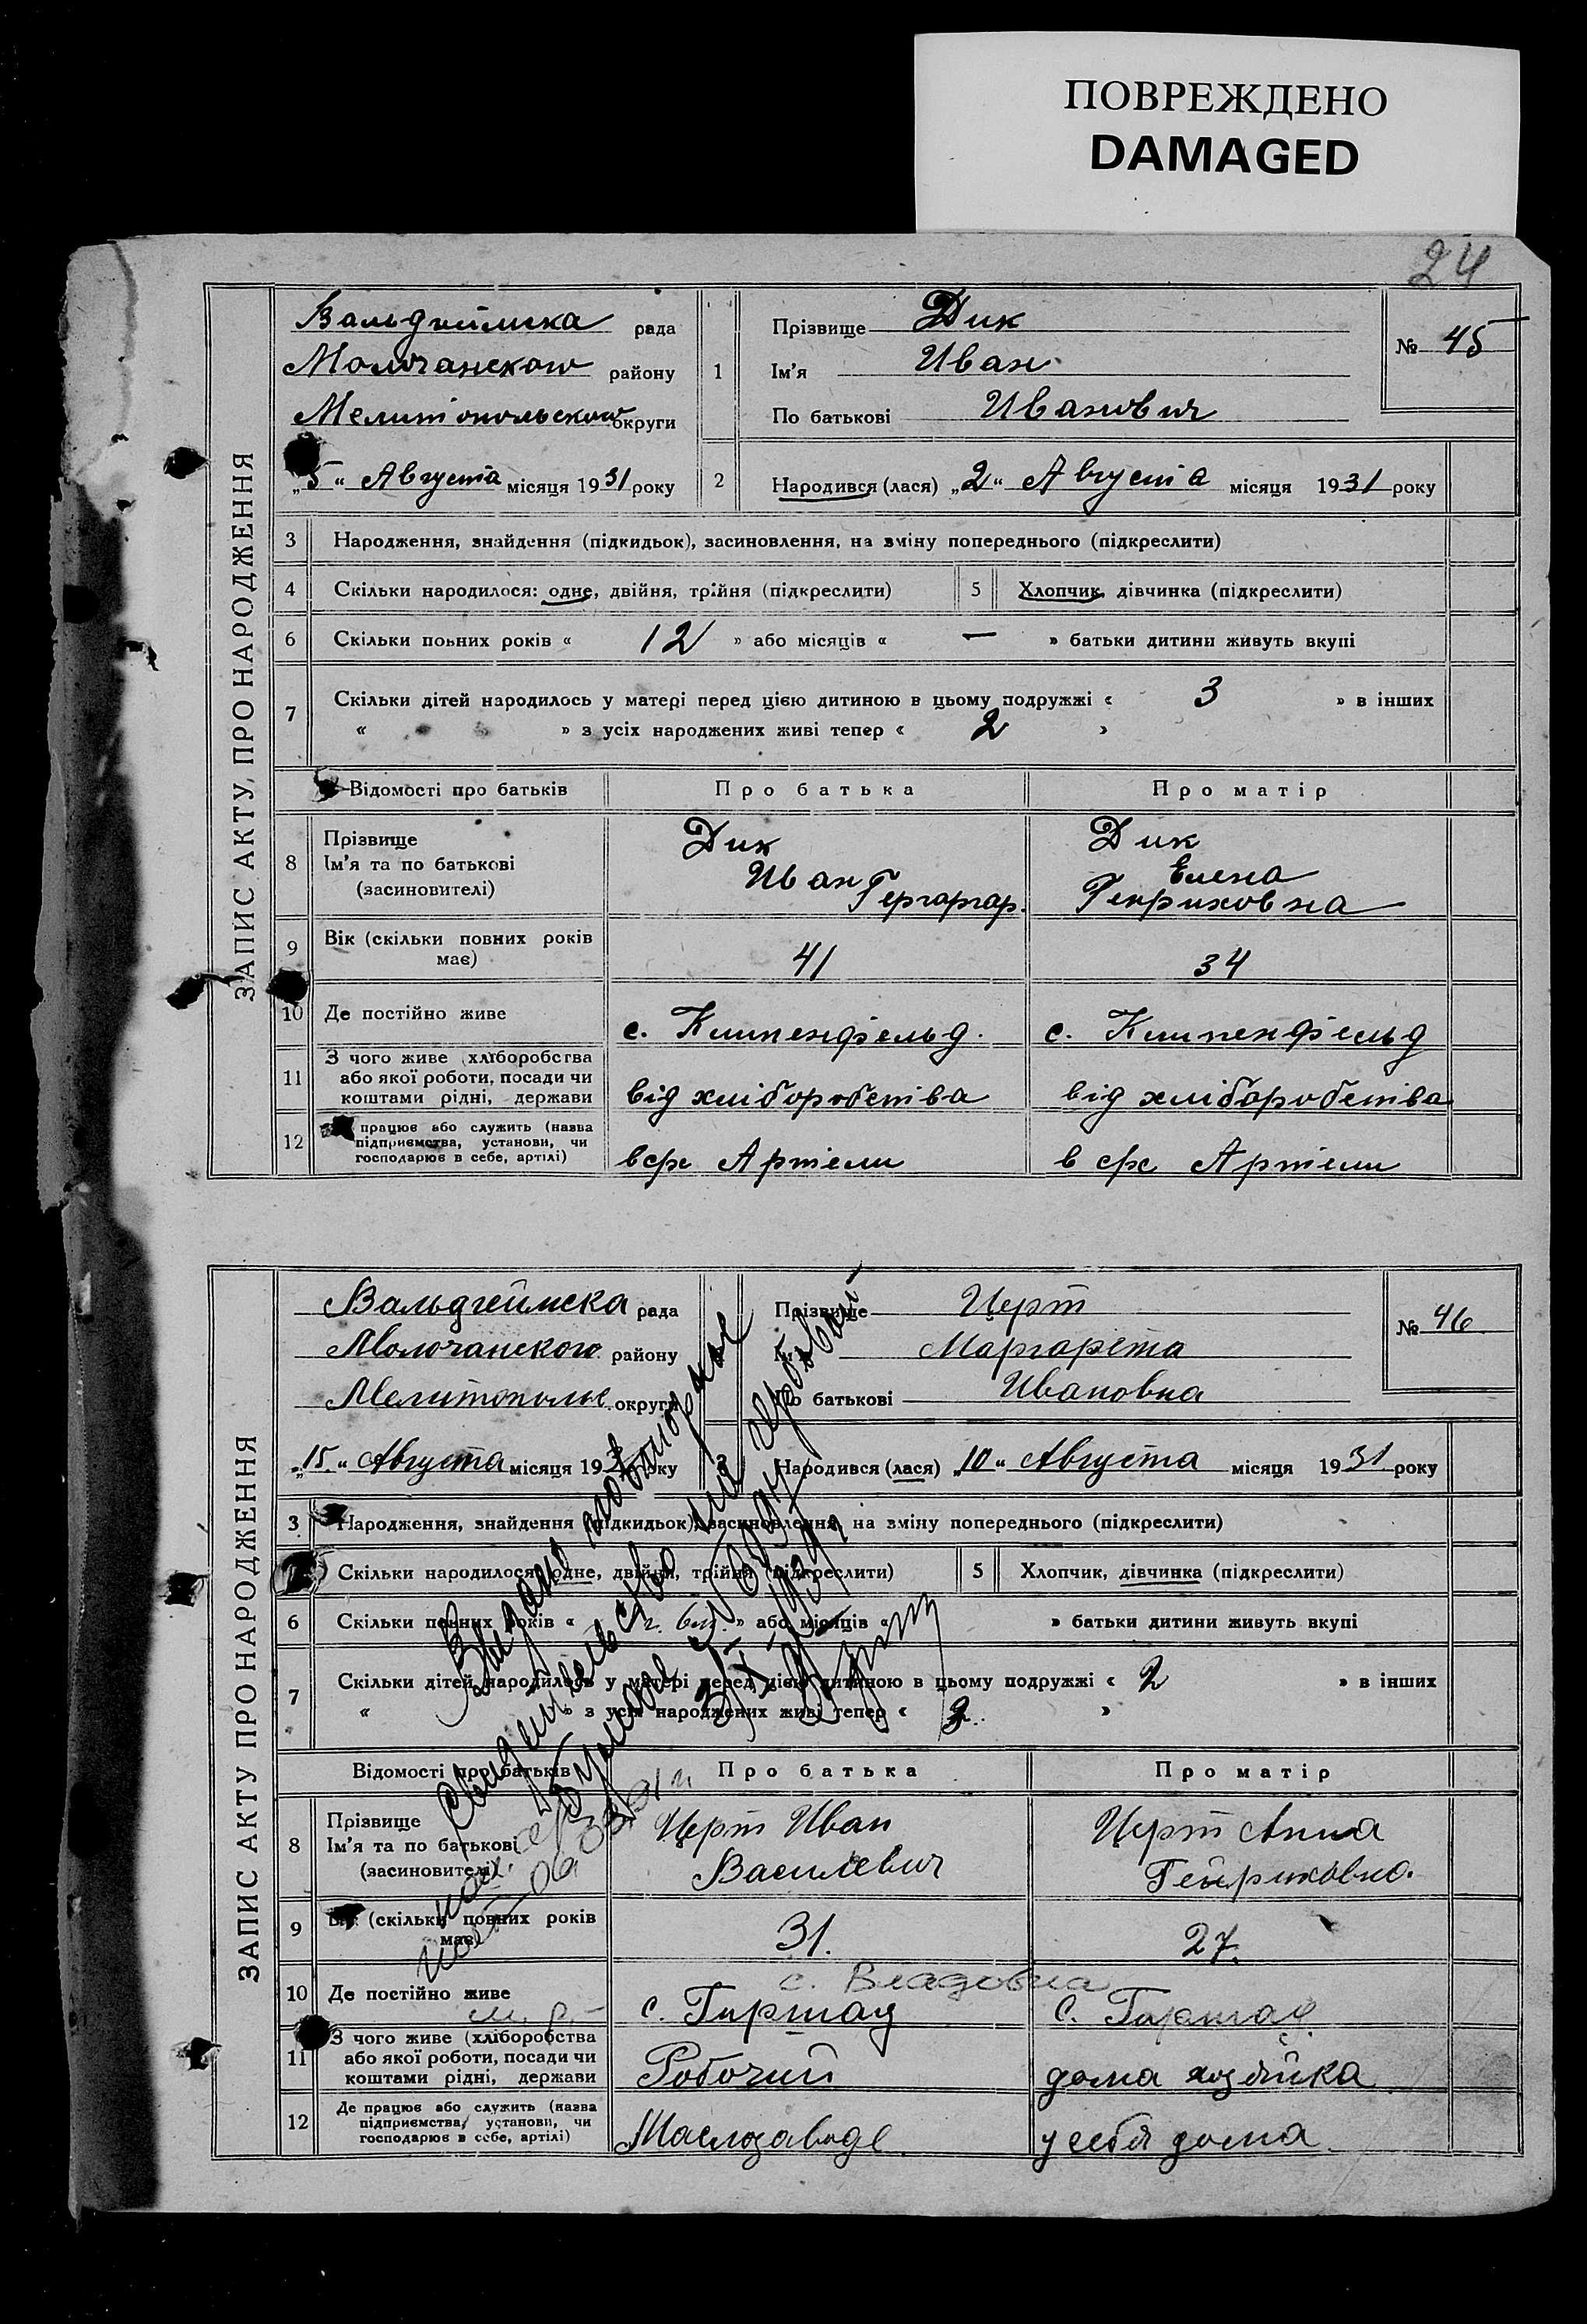 ПОВРЕЖДЕНО
DAMAGED
24
ЗАПИС АКТУ ПРО НАРОДЖЕННЯ
Вальдгеймска рада
Молочанского району
Мелитопольского округи
„5“ Августа місяця 1931 року
1
Прізвище Дик
Ім'я Иван
По батькові Иванович
№ 45
2 Народився (лася) „2“ Августа місяця 1931 року
3 Народження, знайдення (підкидьок), засиновлення, на зміну попереднього (підкреслити)
4 Скільки народилося: одне, двійня, трійня (підкреслити) 5 Хлопчик, дівчинка (підкреслити)
6 Скільки повних років « 12 » або місяців « — » батьки дитини живуть вкупі
7 Скільки дітей народилось у матері перед цією дитиною в цьому подружжі « 3 » в інших
« » з усіх народжених живі тепер « 2 »
Відомості про батьків Про батька Про матір
8 Прізвище
Ім'я та по батькові
(засиновителі)
Дик
Иван
Гергаргар.
Дик
Елена
Генриховна
9 Вік (скільки повних років
має)
41 34
10 Де постійно живе с. Клипенфельд. с. Клипенфельд
11 З чого живе (хліборобства
або якої роботи, посади чи
коштами рідні, держави
від хліборобства від хліборобства
12 працює або служить (назва
підприємства, установи, чи
господарює в себе, артілі)
в с/х Артели в с/х Артели
ЗАПИС АКТУ ПРО НАРОДЖЕННЯ
Вальдгеймска рада
Молочанского району
Мелитополь. округи
„15.“ Августа місяця 193 року
Прізвище Церт
Ім'я Маргарета
По батькові Ивановна
№ 46
2 Народився (лася) „10“ Августа місяця 1931 року
3 Народження, знайдення (підкидьок), засиновлення, на зміну попереднього (підкреслити)
Скільки народилося: одне, двійня, трійня (підкреслити) 5 Хлопчик, дівчинка (підкреслити)
6 Скільки повних років « » або місяців « » батьки дитини живуть вкупі
7 Скільки дітей народилось у матері перед цією дитиною в цьому подружжі « 2 » в інших
« » з усіх народжених живі тепер « 2. »
Выдано повторное
свидетельство на гербовой
бумаге
Відомості про батьків Про батька Про матір
8 Прізвище
Ім'я та по батькові
(засиновителі)
Церт Иван
Василевич
Церт Анна
Генриховна.
9 (скільки повних років
має)
31. 27.
10 Де постійно живе
с. Владовка
с. Гиршау с. Гиршау
11 З чого живе (хліборобства
або якої роботи, посади чи
коштами рідні, держави
Робочий дома хозяйка
12 Де працює або служить (назва
підприємства, установи, чи
господарює в себе, артілі)
Маслозаводе у себя дома.